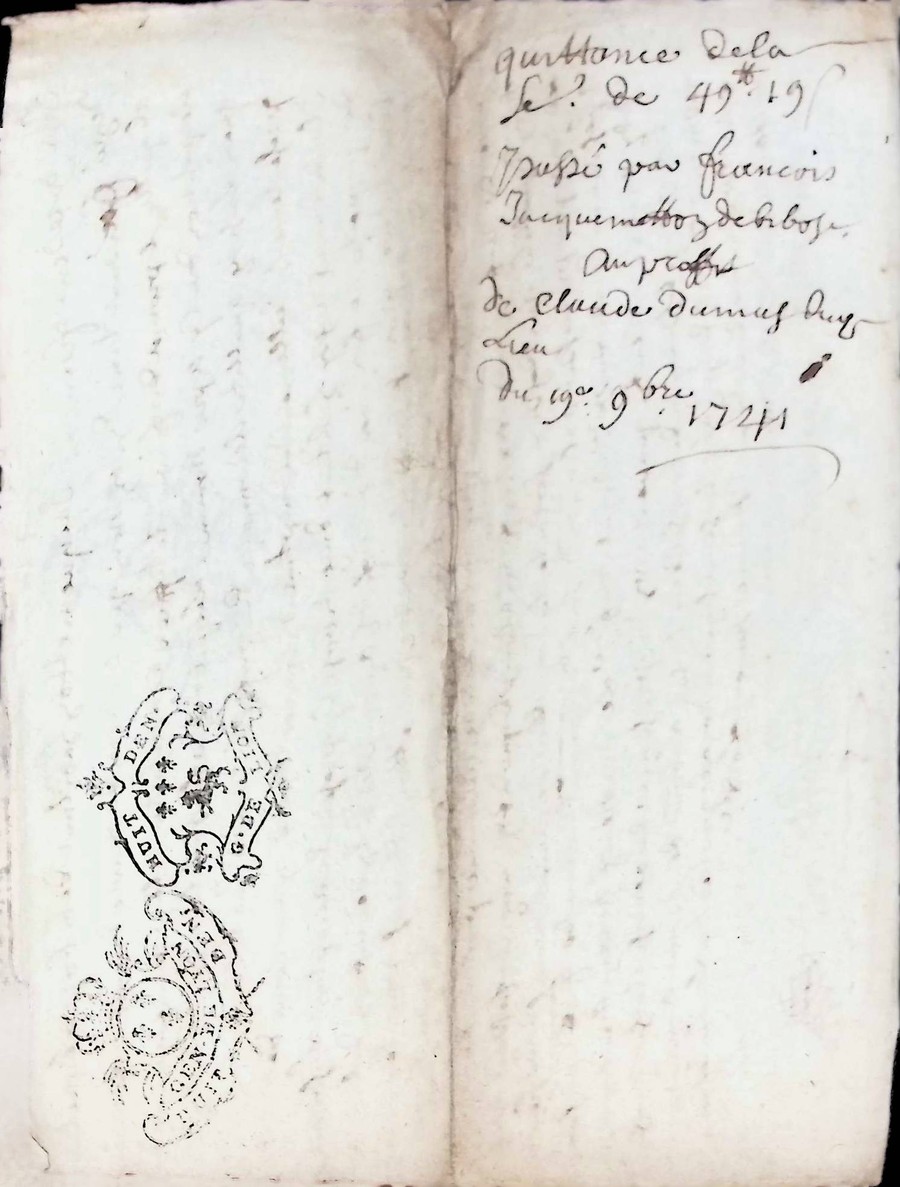 quittance dela
Se.? de 49tt 19s
passé par francois
Jacquemettoz debibost
Au proffit
de claude dumas dud
Lieu
du 19e. 9bre
1741
HUIT DEN.
G. DE LION
GEN. DE LYON
HUIT DEN